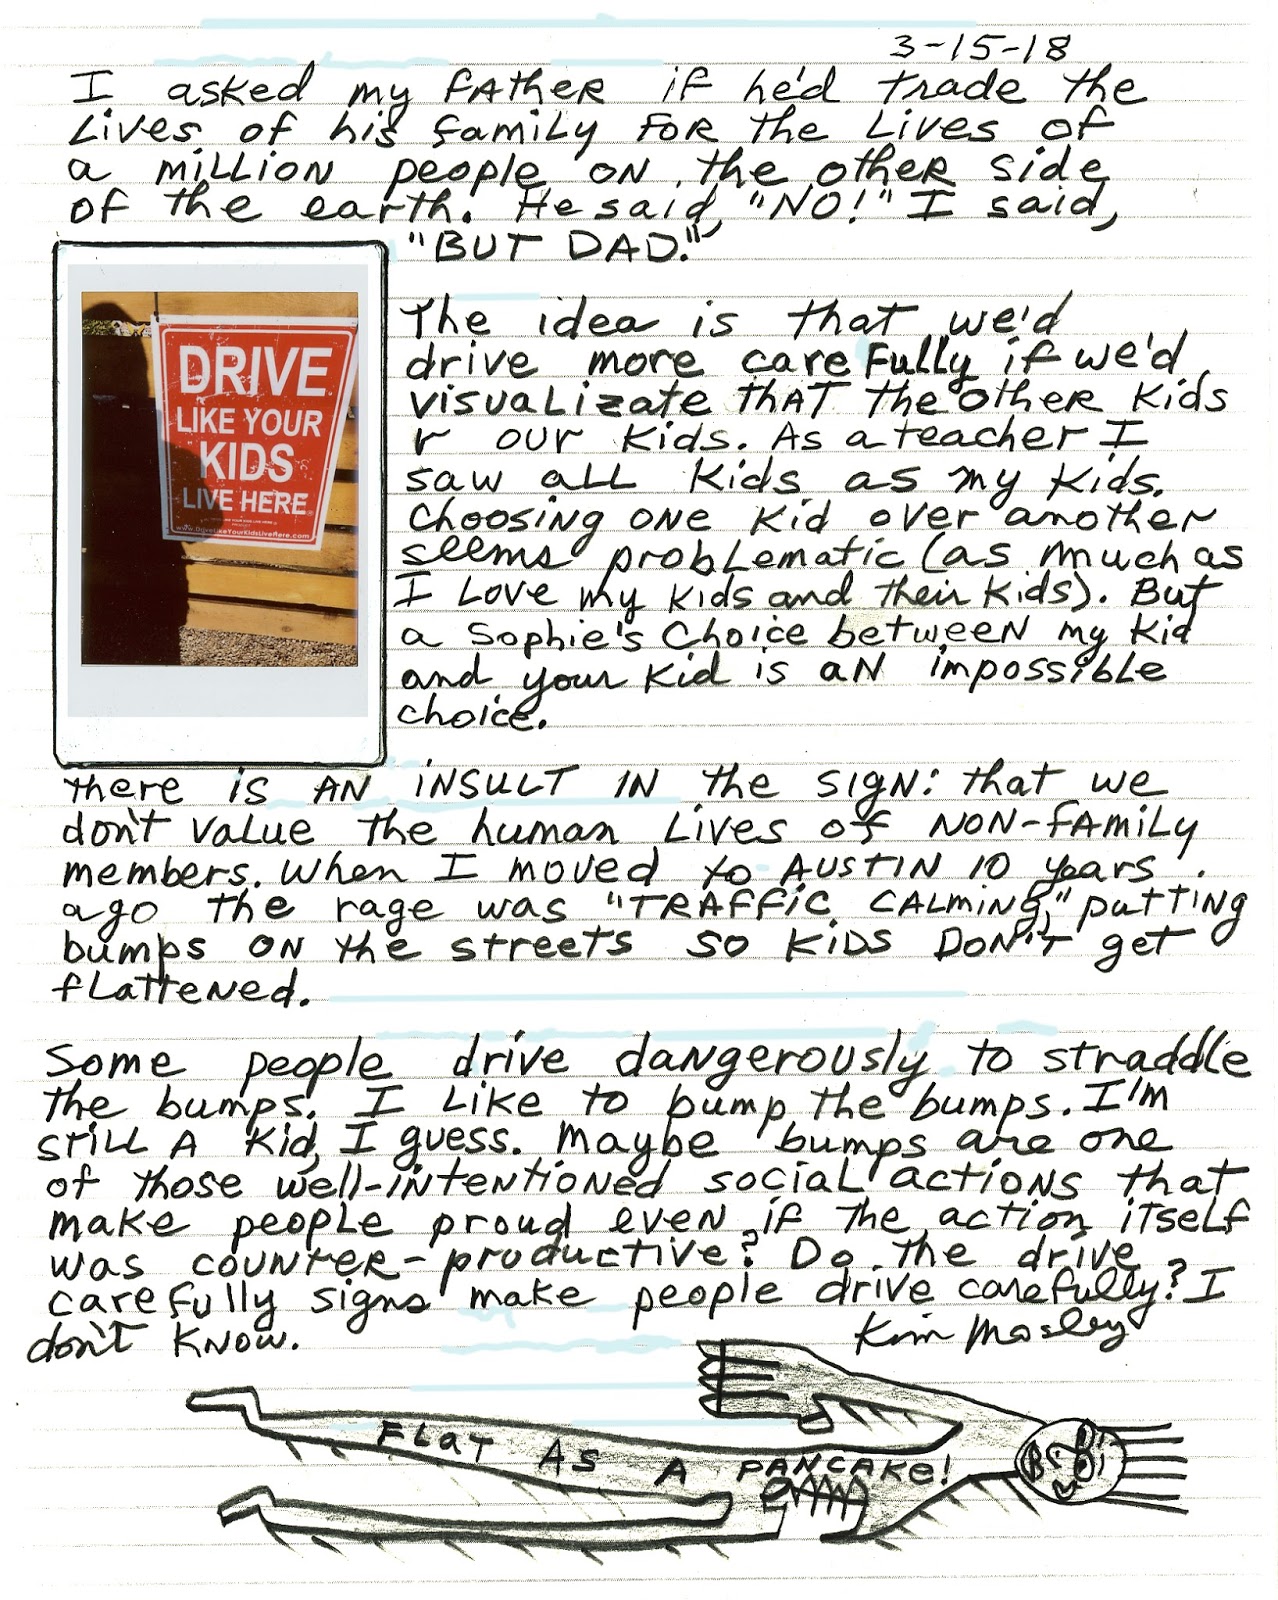 3-15-18
I asked my father if he'd trade the
lives of his family for the lives of
a million people on the other side
of the earth. He said, "NO!" I said,
"BUT DAD."
DRIVE
LIKE YOUR
KIDS
LIVE HERE
www.DriveLikeYourKidsLiveHere.com
The idea is that we'd
drive more carefully if we'd
visualizate that the other kids
r our kids. As a teacher I
saw all kids as my kids.
Choosing one kid over another
seems problematic (as much as
I love my kids and their kids). But
a Sophie's Choice between my kid
and your kid is an impossible
choice.
There is an insult in the sign: that we
don't value the human lives of non-family
members. When I moved to Austin 10 years
ago the rage was "TRAFFIC CALMING," putting
bumps on the streets so kids don't get
flattened.
Some people drive dangerously to straddle
the bumps. I like to bump the bumps. I'm
still a kid, I guess. Maybe bumps are one
of those well-intentioned social actions that
make people proud even if the action itself
was counter-productive? Do the drive
carefully signs make people drive carefully? I
don't know.
Kim Mosley
FLAT AS A PANCAKE!